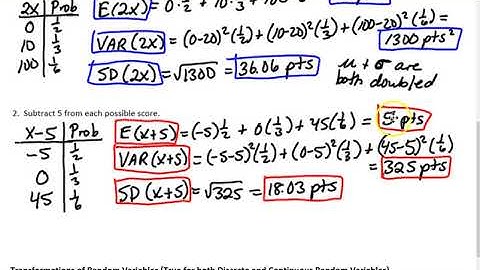 2X Prob E(2x) = 0·½ + 10·⅓ + 100·⅙ =
0 ½ VAR(2x) = (0-20)²(½) + (10-20)²(⅓) + (100-20)²(⅙) =
10 ⅓ 1300 pts²
100 ⅙ SD(2x) = √1300 = 36.06 pts μ + σ are
both doubled
2. Subtract 5 from each possible score.
X-5 Prob E(X+5) = (-5)½ + 0(⅓) + 45(⅙) = 5 pts
-5 ½ VAR(X+5) = (-5-5)²(½) + (0-5)²(⅓) + (45-5)²(⅙)
0 ⅓ = 325 pts
45 ⅙ SD(X+5) = √325 = 18.03 pts
Transformations of Random Variables (True for both Discrete and Continuous Random Variables)